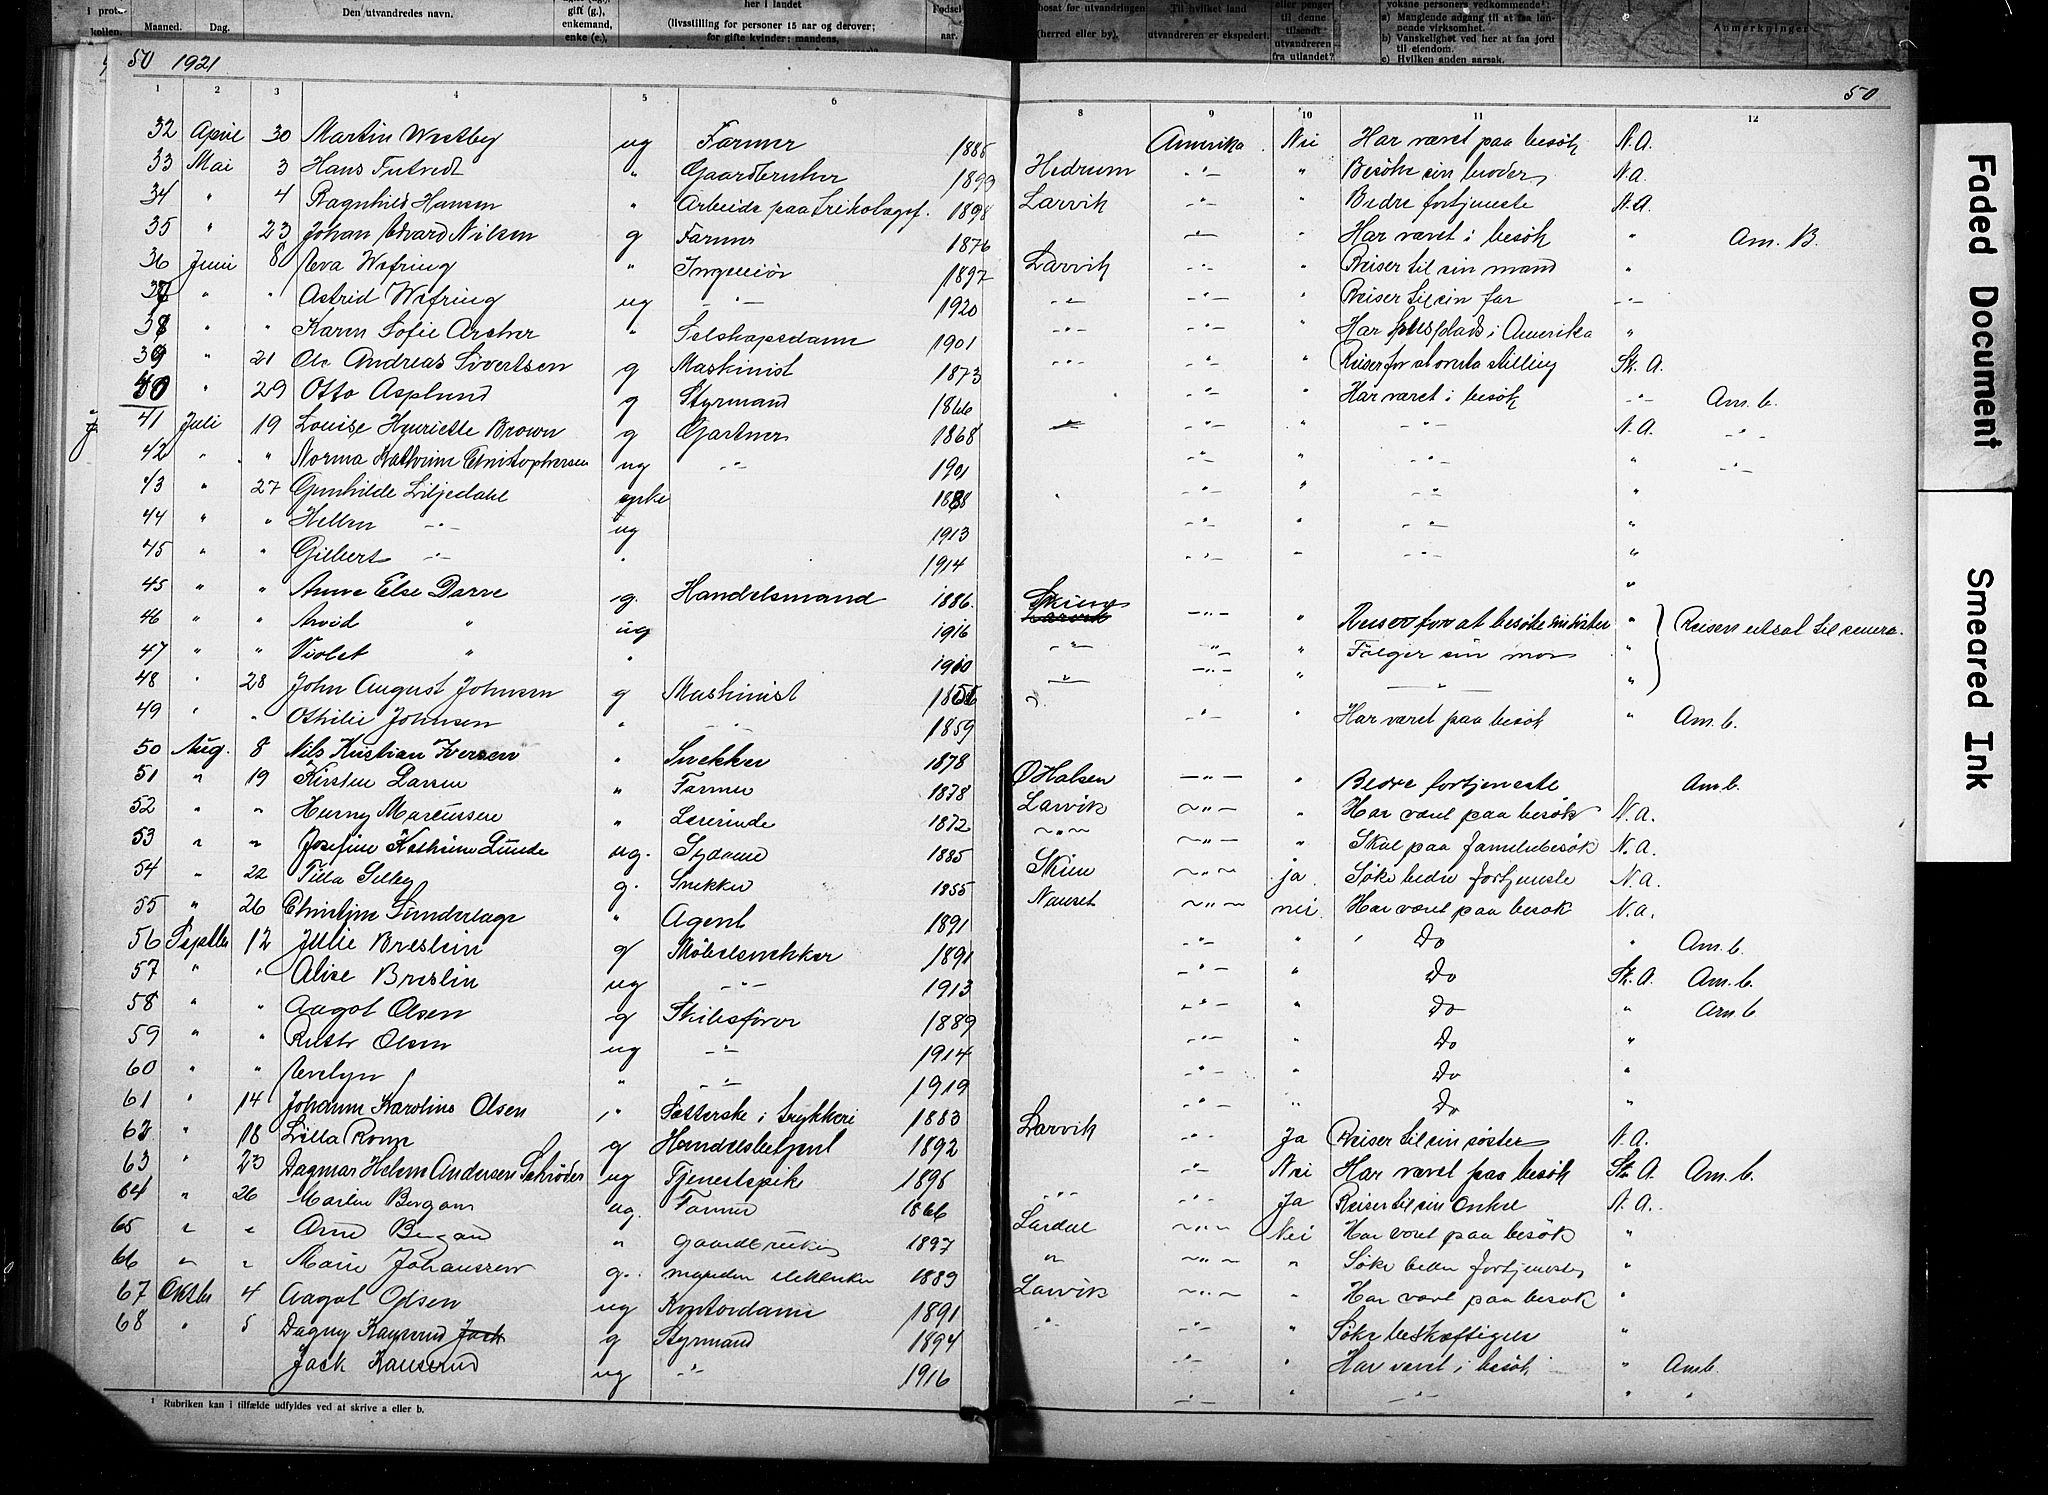 i proto-
kollen.
Maaned.
Dag.
Den utvandredes navn.
gift (g.),
enkemand,
enke (e.),
her i landet
(livsstilling for personer 15 aar og derover;
for gifte kvinder: mandens,
Fødsels-
aar.
bosat før utvandringen
(herred eller by),
Til hvilket land
utvandreren er ekspedert.
eller penger
til denne
tilsendt
utvandreren
fra utlandet?
voksne personers vedkommende¹:
a) Manglende adgang til at faa løn-
nende virksomhet.
b) Vanskelighet ved her at faa jord
til eiendom.
c) Hvilken anden aarsak.
Anmerkninger
50 1921
50
1 2 3 4 5 6 8 9 10 11 12
32 April 30 Martin Westby ug Farmer 1885 Amerika Nei Har været paa besök N.A.
33 Mai 3 Hans " Gaardbruker 1893 Hedrum -"- " Besöke sin broder N.A.
34 " 4 Ragnhild Hansen " Arbeide paa Trikotagef. 1898 Larvik -"- " Bedre fortjeneste N.A.
35 " 23 Johan Edvard Nilsen g Farmer 1876 -"- " Har været i besök " Am. B.
36 Juni 8 Eva Wefring " Ingeniör 1897 Larvik -"- " Reiser til sin mand "
37 " " Astrid Wefring ug -"- 1920 -"- -"- " Reiser til sin far -"-
38 " " Karen Sofie Archer " Selskapsdame 1901 -"- -"- " Har plads i Amerika "
39 " 21 Ole Andreas Sivertsen g Maskinist 1873 -"- -"- " Reiser for at overta stilling Sk. A.
40 " 29 Otto Asplund g Styrmand 1866 -"- " Har været i besök -"- Am. b.
41 Juli 19 Louise Henriette Brown g Gartner 1868 -"- -"- " -"- N.A. -"-
42 " " Norma Kathrine Christophersen ug -"- 1901 -"- " -"- " -"-
43 " 27 Gunhilde Liljedahl enke 1888 -"- " -"- "
44 " " Hellen -"- ug 1913 -"- " -"- "
45 " " Gilbert -"- " 1914 -"- " -"- "
45 " " Anne Else Darre g. Handelsmand 1886. Skien "
46 " " Arvid " ug 1916 Larvik -"- " Reiser for at besöke sin söster " Reisen utsat til senere.
47 " " Violet " " 1910 -"- -"- " Følger sin mor "
48 " 28 John August Johnsen g Maskinist 1856 -"- -"- " -"- "
49 " " Othilie Johnsen " -"- 1859 -"- " Har været paa besök " Am. b.
50 Aug. 8 Nils Kristian Iversen " Snekker 1878
51 " 19 Kirsten Larsen " Farmer 1878 Ø Halsen -"- " Bedre fortjeneste Am b.
52 " " Henny Marcussen " Lærerinde 1872 Larvik -"- " Har været paa besök N.A.
53 " " Josefine Kathrine Lunde ug. Sydame 1885 -"- -"- " Skal paa familiebesök N.A.
54 " 22 Tilla Selby g. Snekker 1855 Skien -"- ja Söke bedre fortjeneste N.A.
55 " 26 Christine " Agent 1891 Nanset -"- nei Har været paa besök N.A.
56 Septbr 12 Julie Breslin g Möbelsnekker 1891 -"- " " Do " Am. b.
57 " " Alise Breslin ug -"- 1913 -"- " Do Sk. A. Am. b.
58 " " Aagot Olsen g Skibsförer 1889 -"- " Do " Am. b
59 " " Ruth Olsen ug -"- 1914 -"- " Do "
60 " " Evelyn " -"- 1919 -"- " Do "
61 " 14 Johanne Karoline Olsen " Sætterske i trykkeri 1883 -"- " Do "
62 " 18 Lilla Romp g Handelsbetjent 1892 Larvik -"- Ja Reiser til sin söster N.A.
63 " 23 Dagmar Helene Andersen Schröder ug Tjenestepike 1895 -"- Nei Har været paa besök Sk. A. Am. b.
64 " 26 Martin Bergan ug. Farmer 1866 -"- -"- Ja Reiser til sin onkel N.A.
65 " " Arne Bergan " gaardbruker 1897 Lardal -"- Nei Har været paa besök "
66 " " Marie Johanssen g. manden elektriker 1889 " -"- " Söke bedre fortjeneste "
67 Oktbr 4 Aagot Olsen ug Kontordame 1891 Larvik -"- " Har været paa besök "
68 " 5 Dagny Kauserud Jack g Styrmand 1894 -"- " Söke beskæftigelse "
Jack Kauserud ug -"- 1916 -"- " Har været i besök " Am b.
-"- " -"- " "
¹ Rubriken kan i tilfælde utfyldes ved at skrive a eller b.
Faded Document
Smeared Ink